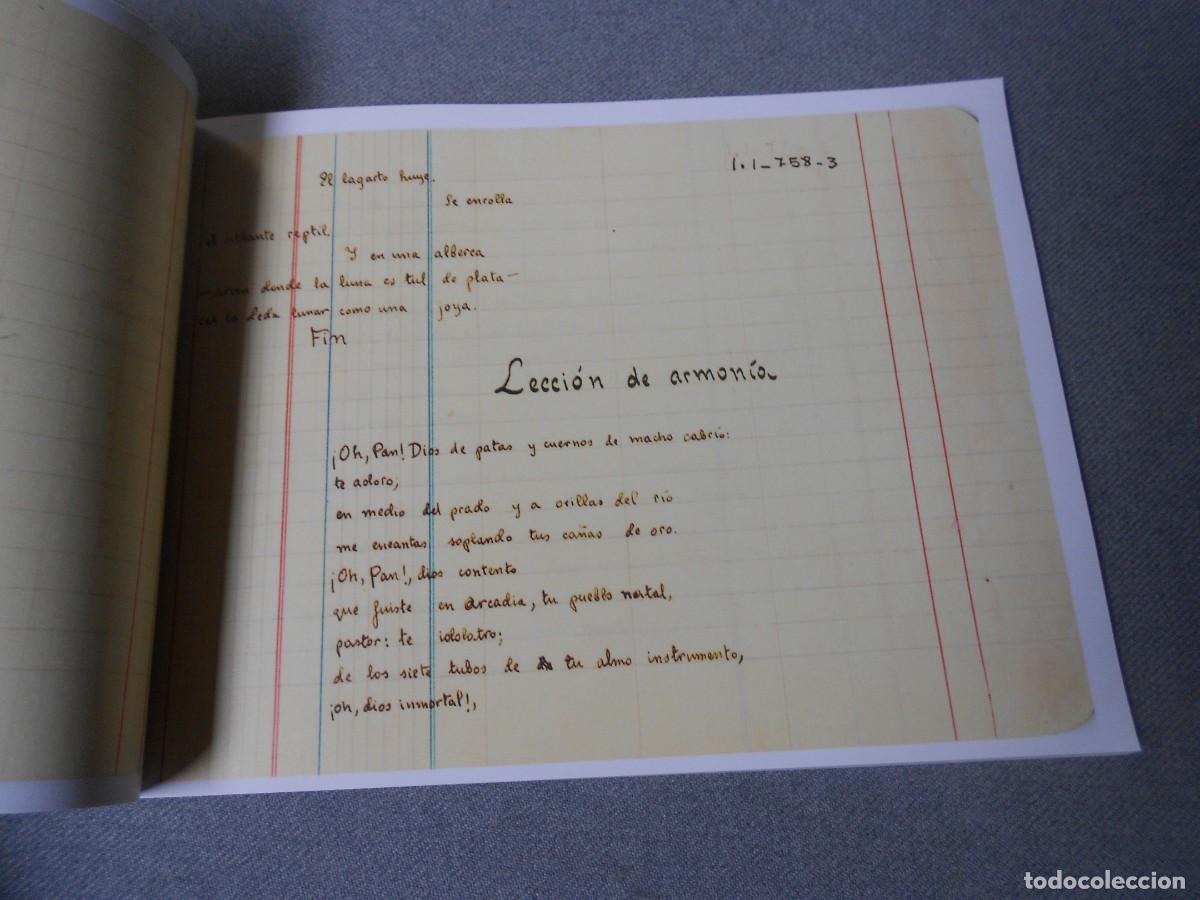 1.1-758-3
El lagarto huye.
Se enrolla
reptil.
Y en una alberca
donde la luna es tul de plata—
la Leda lunar como una joya.
Fin
Lección de armonía
¡Oh, Pan! Dios de patas y cuernos de macho cabrío:
te adoro,
en medio del prado y a orillas del río
me encantas soplando tus cañas de oro.
¡Oh, Pan!, dios contento
que fuiste en Arcadia, tu pueblo natal,
pastor: te idolatro;
de los siete tubos de tu almo instrumento,
¡oh, dios inmortal!,
todocoleccion